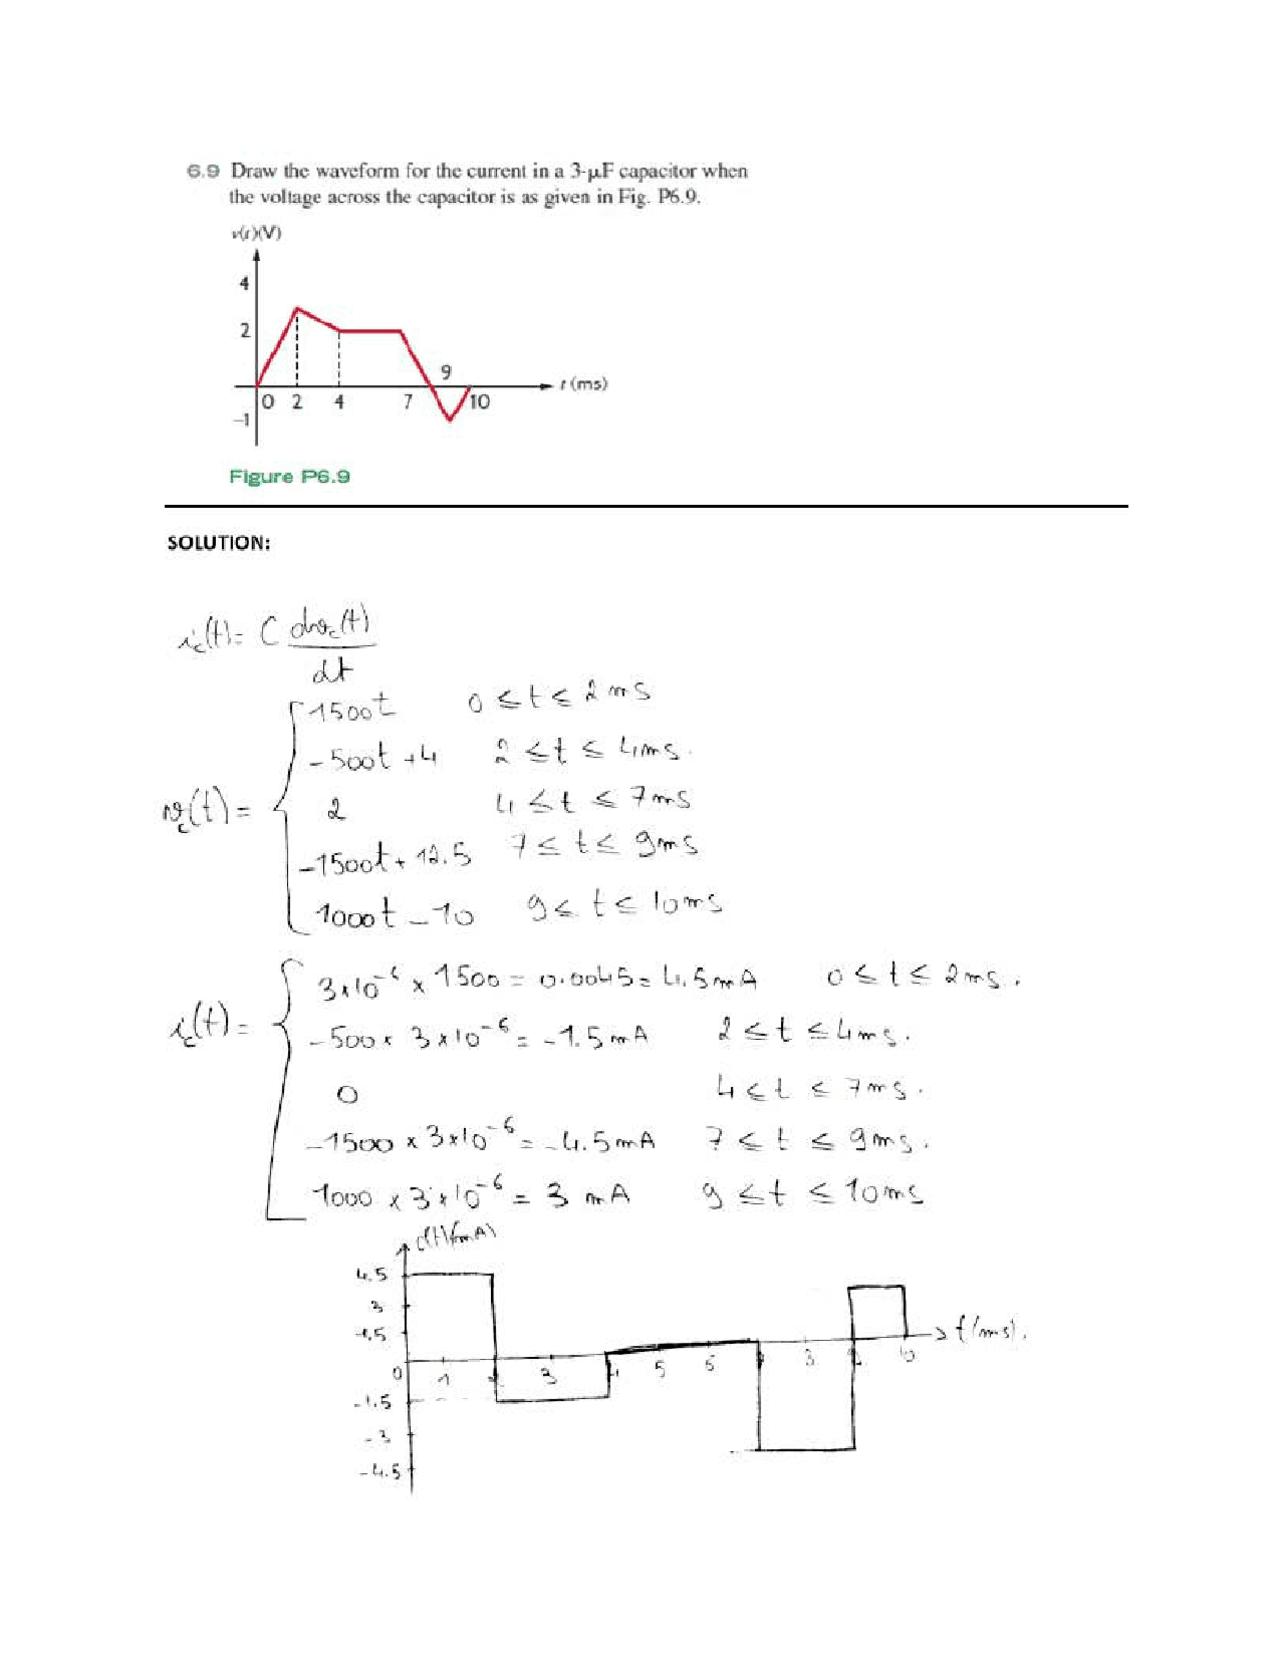 6.9 Draw the waveform for the current in a 3-μF capacitor when
the voltage across the capacitor is as given in Fig. P6.9.
v(t)(V)
4
2
9
t (ms)
0 2 4 7 10
–1
Figure P6.9
SOLUTION:
i_c(t) = C dv_c(t)/dt
v_c(t) =
1500t 0 ≤ t ≤ 2 ms
-500t + 4 2 ≤ t ≤ 4 ms.
2 4 ≤ t ≤ 7 ms
-1500t + 12.5 7 ≤ t ≤ 9 ms
1000t - 10 9 ≤ t ≤ 10 ms
i_c(t) =
3×10⁻⁶ × 1500 = 0.0045 = 4.5 mA 0 ≤ t ≤ 2 ms.
-500 × 3×10⁻⁶ = -1.5 mA 2 ≤ t ≤ 4 ms.
0 4 ≤ t ≤ 7 ms.
-1500 × 3×10⁻⁶ = -4.5 mA 7 ≤ t ≤ 9 ms.
1000 × 3×10⁻⁶ = 3 mA 9 ≤ t ≤ 10 ms
i(t)(mA)
4.5
3
1.5
t(ms).
0 1 3 5 6 10
-1.5
-3
-4.5